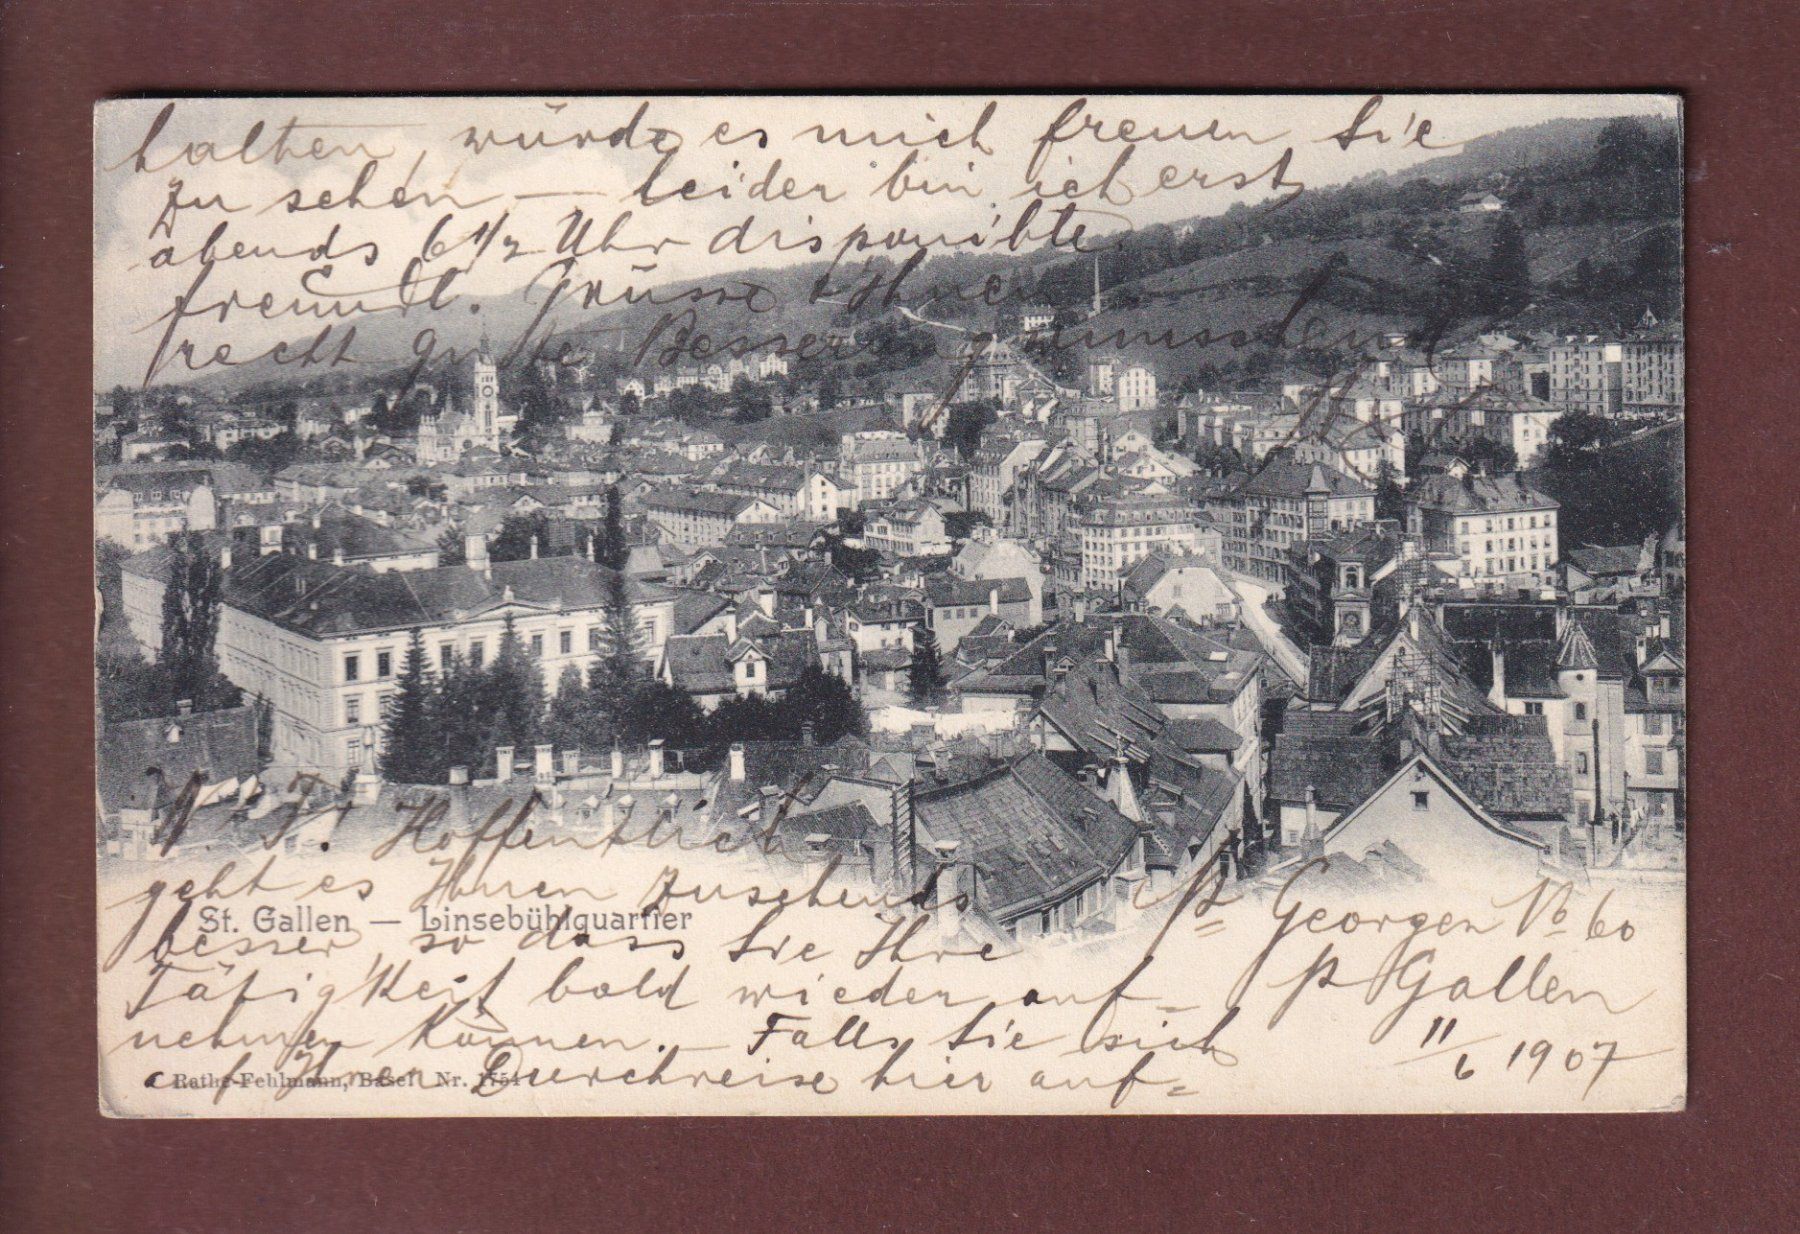 halten, würde es mich freuen Sie
zu sehen — leider bin ich erst
abends 6 1/2 Uhr disponibte.
freundl. Grüsse, Ihnen
recht gute Besserung wünschend
N. F. Hoffentlich
geht es Ihnen zusehends
St. Gallen — Linsebühlquartier
besser so dass Sie Ihre
Tätigkeit bald wieder auf=
nehmen können. — Falls Sie sich
auf Ihrer Durchreise hier auf=
Rathe-Fehlmann, Basel Nr. 1754
St Georgen No 60
St Gallen
11/6 1907